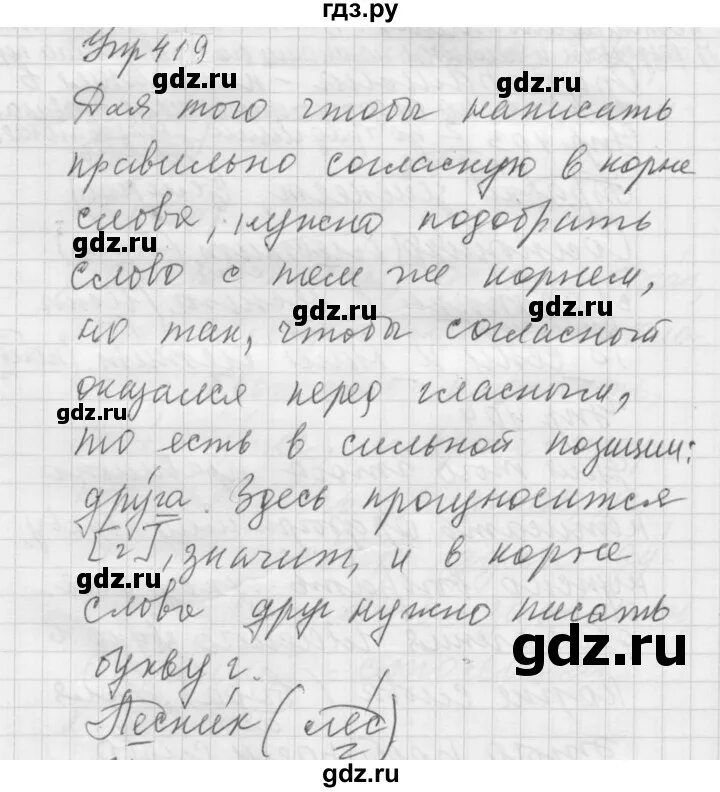 гдз.ру
Упр 419
gdz.ru
gdz.ru
Для того чтобы написать
правильно согласную в корне
слова, нужно подобрать
gdz.ru
слово с тем же корнем,
gdz.ru
gdz.ru
но так, чтобы согласный
оказался перед гласным,
gdz.ru
то есть в сильной позиции:
друга. Здесь произносится
[г], значит, и в корне
слова друг нужно писать
gdz.ru
букву г.
Лесник (лес)
gdz.ru